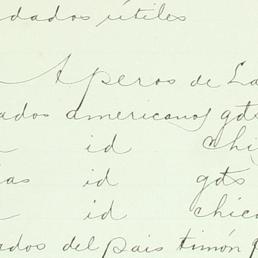 dados útiles
Aperos de La
ados americanos gds
id chi
as id gds
id chico
ados del pais timón